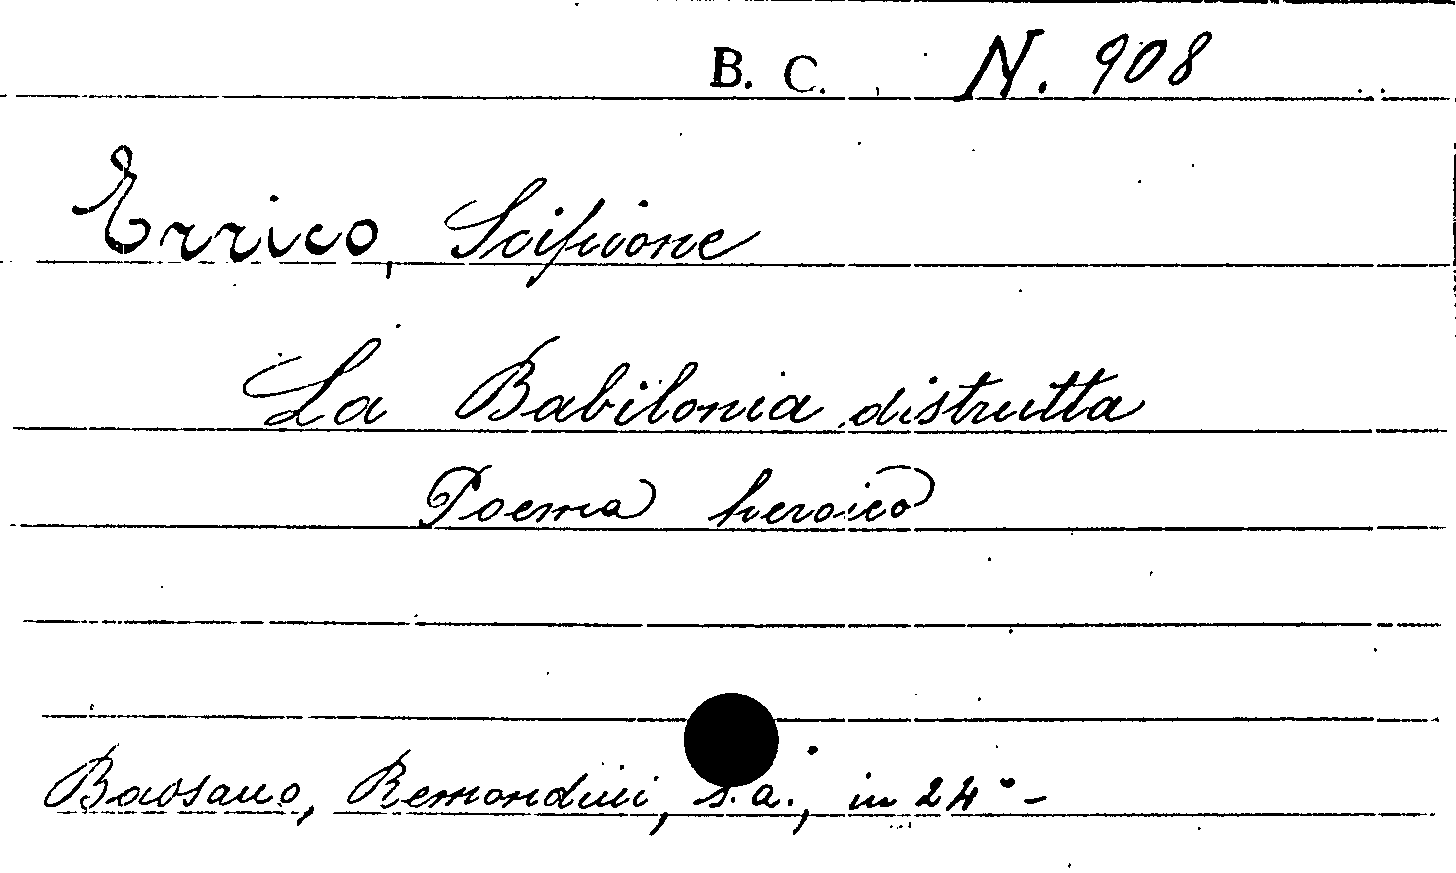 B. C. N. 908
Errico, Scipione
La Babilonia distrutta
Poema heroico
Bassano, Remondini, s.a., in 24° -